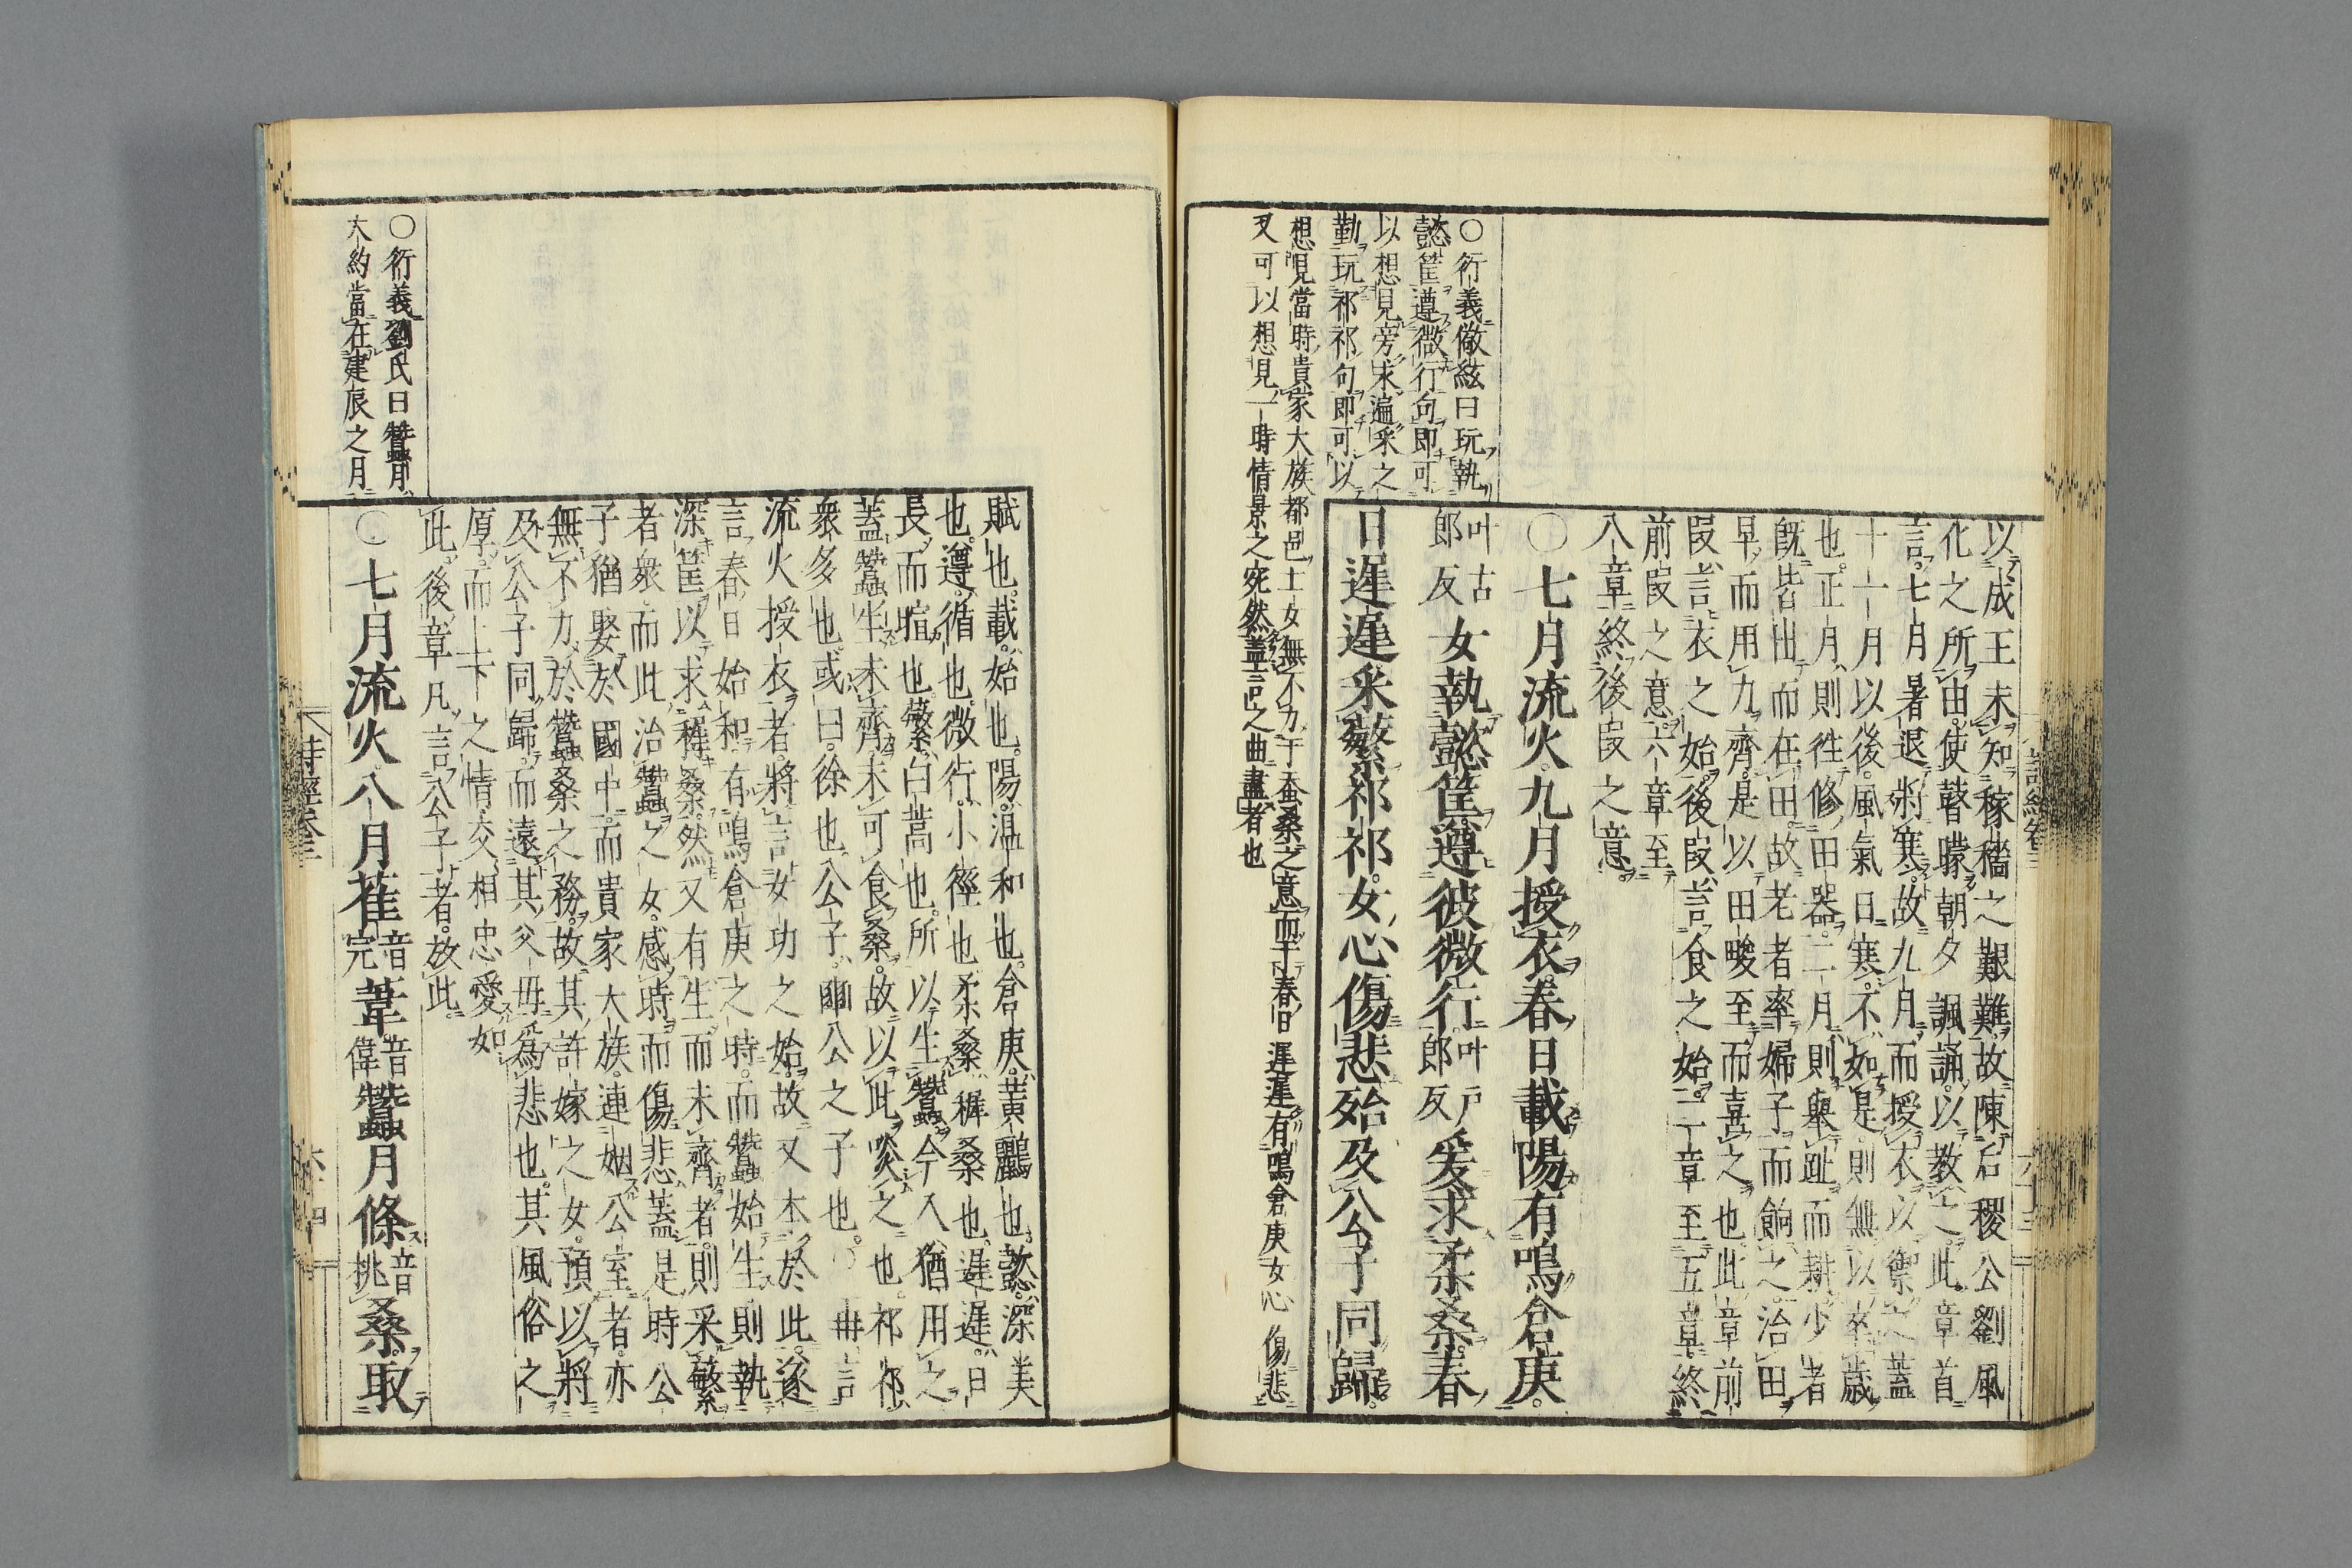 以成王未知稼穡之艱難故陳后稷公劉風
化之所由使瞽矇朝夕諷誦以教之此章首
言七月暑退將寒故九月而授衣以禦之蓋
十一月以後風氣日寒不如是則無以卒歲
也正月則往修田器二月則舉趾而耕少者
既皆出而在田故老者率婦子而餉之治田
早而用力齊是以田畯至而喜之也此章前
段言衣之始後段言食之始二章至五章終
前段之意六章至
八章終後段之意
〇七月流火九月授衣春日載陽有鳴倉庚
叶古
郎反
女執懿筐遵彼微行
叶戸
郎反
爰求柔桑春
日遲遲采蘩祁祁女心傷悲殆及公子同歸
〇衍義儆絃曰玩執
懿筐遵微行句即可
以想見旁求遍采之
勤玩祁祁句即可以
想見當時貴家大族都邑士女無不力于蚕桑之意而于春日遲遲有鳴倉庚女心傷悲
又可以想見一時情景之宛然蓋言之曲盡者也
詩經卷三
六十三
賦也載始也陽溫和也倉庚黃鸝也懿深美
也遵循也微行小徑也柔桑穉桑也遲遲日
長而暄也蘩白蒿也所以生蠶今人猶用之
蓋蠶生未齊未可食桑故以此啖之也祁祁
衆多也或曰徐也公子豳公之子也〇再言
流火授衣者將言女功之始故又本於此遂
言春日始和有鳴倉庚之時而蠶始生則執
深筐以求穉桑然又有生而未齊者則采蘩
者衆而此治蠶之女感時而傷悲蓋是時公
子猶娶於國中而貴家大族連姻公室者亦
無不力於蠶桑之務故其許嫁之女預以將
及公子同歸而遠其父母爲悲也其風俗之
厚而上下之情交相忠愛如
此後章凡言公子者放此
〇七月流火八月萑
音
完
葦
音
偉
蠶月條
音
挑
桑取
〇衍義劉氏曰蠶月
大約當在建辰之月
詩經卷三
六十四